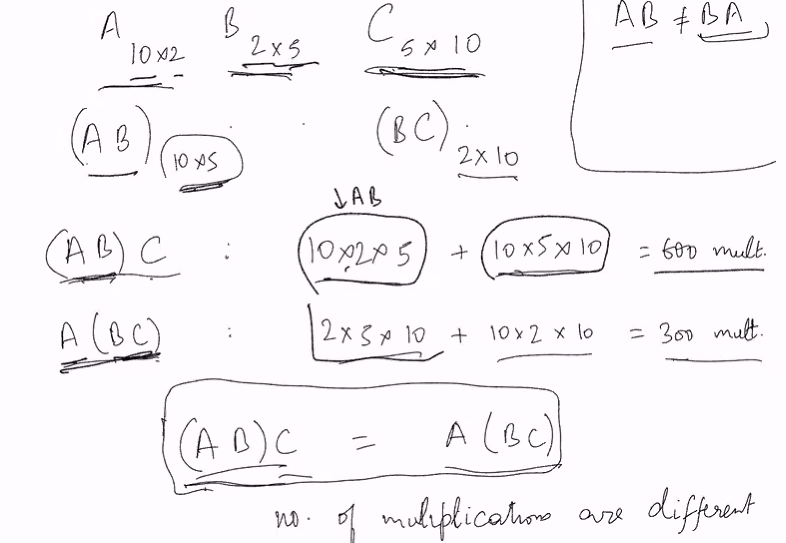 A 10×2 B 2×5 C 5×10
AB ≠ BA
(AB) 10×5 (BC) 2×10
↓AB
(AB)C : 10×2×5 + 10×5×10 = 600 mult.
A(BC) : 2×5×10 + 10×2×10 = 300 mult.
(AB)C = A(BC)
no. of multiplications are different